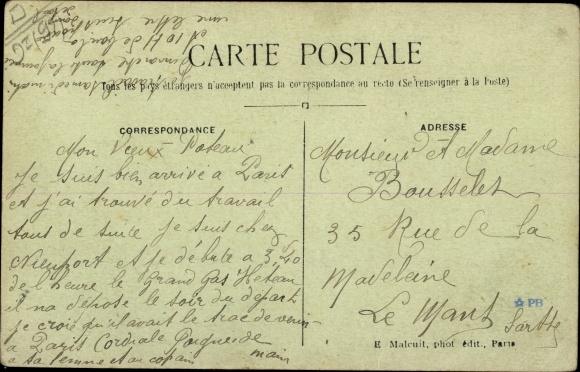 CARTE POSTALE
Tous les pays étrangers n'acceptent pas la correspondance au recto (Se renseigner à la Poste)
CORRESPONDANCE
Mon Vieux Poteau
Je suis bien arrivé a Paris
et j'ai trouvé du travail
tous de suite je suis chez
Nieuport et je débute a 3,40
de l'heure le Grand Gas Heteau
il na dehose le soir du départ
je crois qu'il avait le trac de venir
a Paris Cordiale Poignée de
main
a ta femme et au copain
samedi
Dimanche toute la journée
et 10 H de
une lettre suit
ADRESSE
Monsieur et Madame
Bousselet
35 Rue de la
Madeleine
Le Mans
Sarthe
PB
E Malcuit, phot édit., Paris